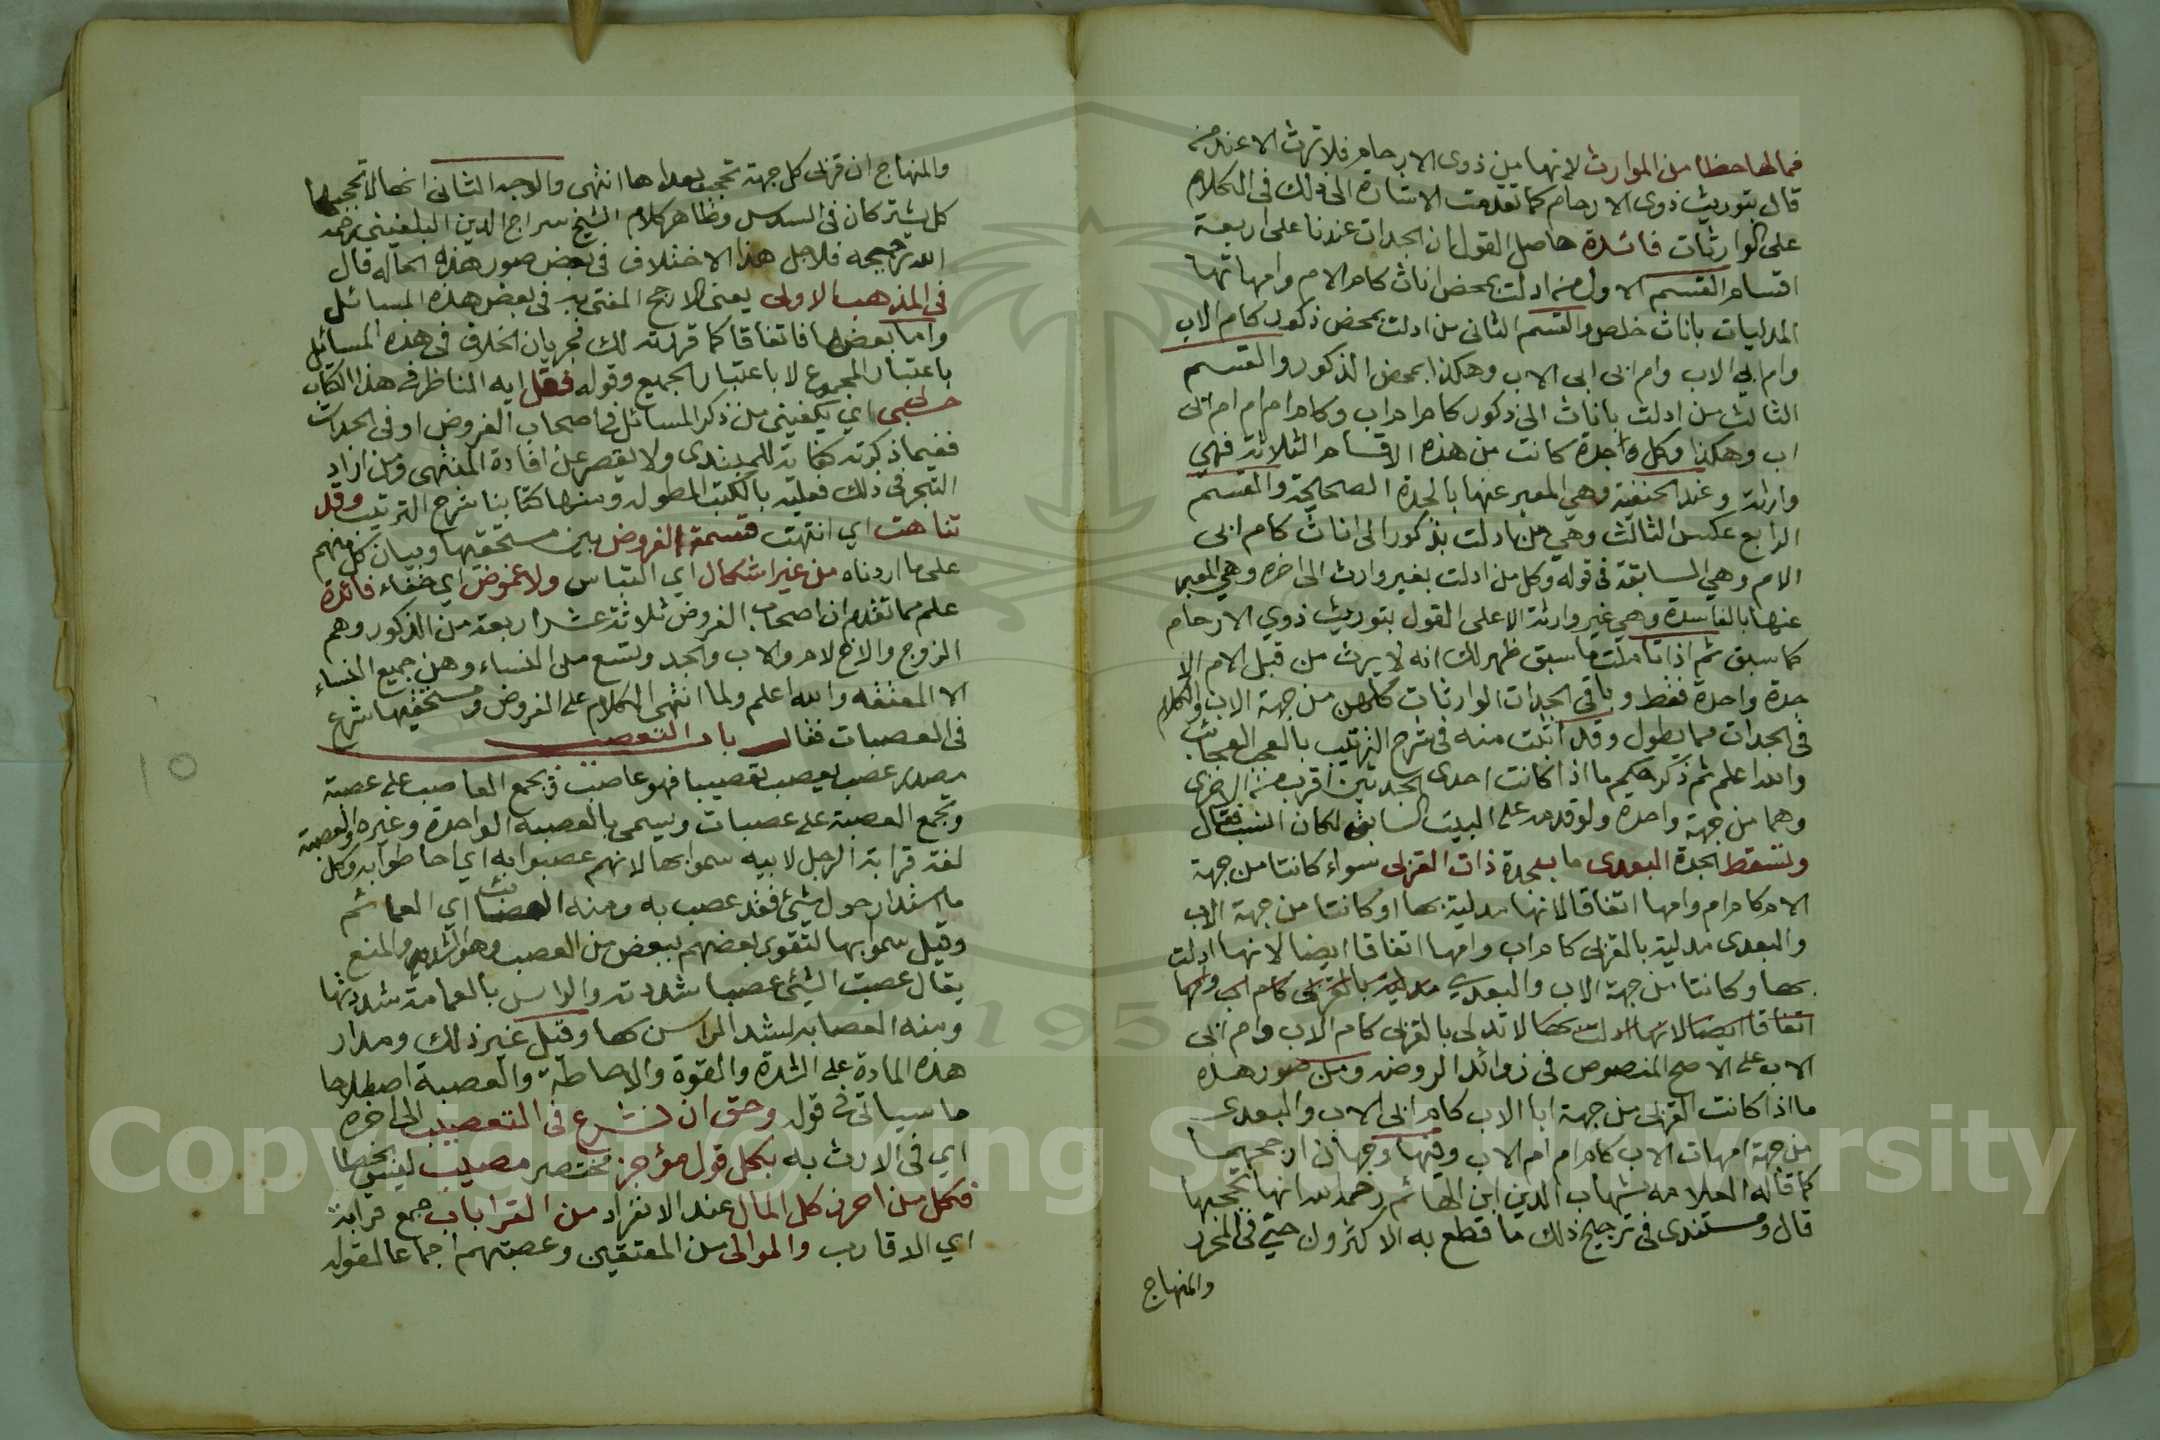 فمالها حظ من الموارث لانها من ذوى الارحام فلا ترث الا عند من
قال بتوريث ذوى الارحام كما تقدمت الاشارة الى ذلك فى الكلام
على الوارثات فائدة حاصل القول ان الجدات عندنا على اربعة
اقسام القسم الاول من ادلت بمحض اناث كام الام وامهاتها
المدليات باناث خلص والقسم الثانى من ادلت بمحض ذكور كام الاب
وام ابي الاب وام ابى ابى الاب وهكذا بمحض الذكور والقسم
الثالث من ادلت باناث الى ذكور كام ام اب وكام ام ام ام ابى
اب وهكذا وكل واحدة كانت من هذه الاقسام الثلاثة فهي
وارثة وعند الحنفية وهي المعبر عنها بالجدة الصحيحة والقسم
الرابع عكس الثالث وهي من ادلت بذكور الى اناث كام ابى
الام وهي السابقة فى قوله وكل من ادلت بغير وارث الى اخره وهي المعبر
عنها بالفاسدة وهي غير وارثة الا على القول بتوريث ذوي الارحام
كما سبق ثم اذا تاملت ما سبق ظهر لك انه لا يرث من قبل الام الا
جدة واحدة فقط وباقى الجدات الوارثات كلهن من جهة الاب والكلام
فى الجدات مما يطول وقد اتيت منه فى شرح الترتيب بالعجب العجائب
والله اعلم ثم ذكر حكم ما اذا كانت احدى الجدتين اقرب من الاخرى
وهما من جهة واحدة ولو قدمه على البيت السابق لكان انسب فقال
وتسقط الجدة البعدى ما بجدة ذات القربى سواء كانتا من جهة
الام كام ام وامها اتفاقا لانها مدلية بها او كانتا من جهة الاب
والبعدى مدلية بالقربى كام اب وامها اتفاقا ايضا لانها ادلت
بها وكانتا من جهة الاب والبعدي مدلية بالقربى كام اب وامها
اتفاقا ايضا لانها ادلت بها لا تدلى بالقربى كام الاب وام ابى
الاب على الاصح المنصوص فى زوائد الروضه ومن صور هذه
ما اذا كانت القربى من جهة ابا الاب كام ابى الاب والبعدى
من جهة امهات الاب كام ام ام الاب وفيها وجهان ارجحهما
كما قاله العلامه شهاب الدين ابن الهائم رحمه الله انها تحجبها
قال ومستندى فى ترجيح ذلك ما قطع به الاكثرون حتى فى المحرر
والمنهاج
والمنهاج ان قربى كل جهة تحجب بعداها انتهى والوجه الثانى انها لا تحجبها
كل يشتركان فى السدس وظاهر كلام الشيخ سراج الدين البلقينى رحمه
الله ترجيحه فلاجل هذا الاختلاف فى بعض صور هذه الحاله قال
فى المذهب الاولى يعنى الارجح المفتى به فى بعض هذه المسائل
واما بعضها فاتفاقا كما قررته لك فجريان الخلاف فى هذه المسائل
باعتبار المجموع لا باعتبار الجميع وقوله فقل ايه المناظر فى هذا الكتاب
حسبى اي يكفينى من ذكر المسائل فى اصحاب الفروض او فى الجدات
ففيما ذكرته كفاية للمبتدى ولا يقصر عن افادة المنتهى ومن اراد
التبحر فى ذلك فعليه بالكتب المطوله ومنها كتابنا شرح الترتيب وقد
تناهت اي انتهت قسمة الفروض بين مستحقيها وبيان كل منهم
على ما اردناه من غير اشكال اي التباس ولا غموض اي خفاء فائدة
علم مما تقدم ان اصحاب الفروض ثلاثة عشر اربعة من الذكور وهم
الزوج والاخ لام والاب والجد وتسع من النساء وهن جميع النساء
الا المعتقه والله اعلم ولما انتهى الكلام على الفروض ومستحقيها شرع
فى العصبات فقال باب التعصيب
مصدر عصب يعصب تعصيبا فهو عاصب ويجمع العاصب على عصبة
وتجمع العصبة على عصبات ويسمى بالعصبه الواحدة وغيره والعصبة
لغة قرابة الرجل لابيه سموا بها لانهم عصبوا به اي احاطوا به وكل
ما استدار حول شيئ فقد عصب به ومنه العصائب اي العمائم
وقيل سموا بها لتقوى بعضهم ببعض من العصب وهو الشد والمنع
يقال عصبت الشيئ عصبا شددته والراس بالعمامة شددتها
ومنه العصابة لشد الراس بها وقيل غير ذلك ومدار
هذه المادة على الشدة والقوة والاحاطة والعصبة اصطلاحا
ما سياتى فى قوله وحق ان نشرع فى التعصيب الى اخره
اي فى الارث به بكل قول موجز مختصر مصيب ليس بخطا
فكل من احرز كل المال عند الانفراد من القرابات جمع قرابة
اي الاقارب والموالى من المعتقين وعصبتهم اجماعا لقوله
١٥
Copyright © King Saud University
1957